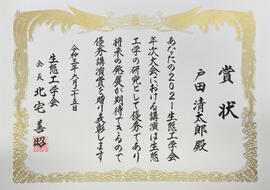 賞状
戸田 清太郎 殿
あなたの2021生態工学会
年次大会における講演は生態
工学の研究として優秀であり
将来の発展が期待できるので
優秀講演賞を贈り表彰します
令和三年六月二十五日
生態工学会
会長 北宅 善昭